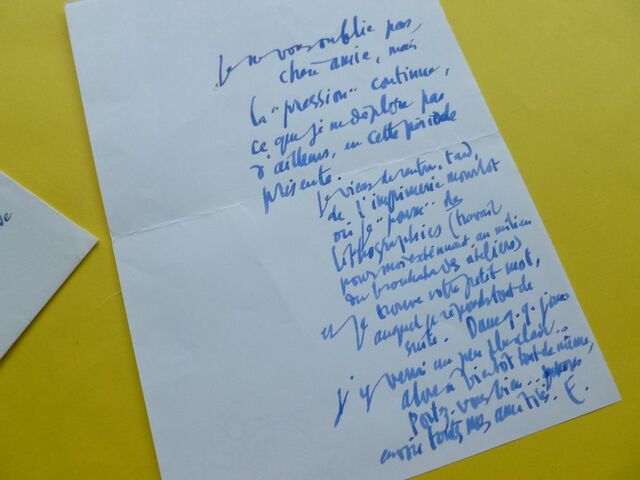 Je ne vous oublie pas,
chère amie, mais
la "pression" continue,
ce que je ne déplore pas
d'ailleurs, en cette période
présente.
Je viens de rentrer, tard,
de l'imprimerie Mourlot
où je des
lithographies (travail
pour moi exténuant, au milieu
du brouhaha des ateliers)
et je trouve votre petit mot,
auquel je réponds tout de
suite. Dans q.q. jours
j'y verrai un peu plus clair..
alors à bientôt tout de même,
Portez-vous bien..
envoie toutes mes amitiés. E.